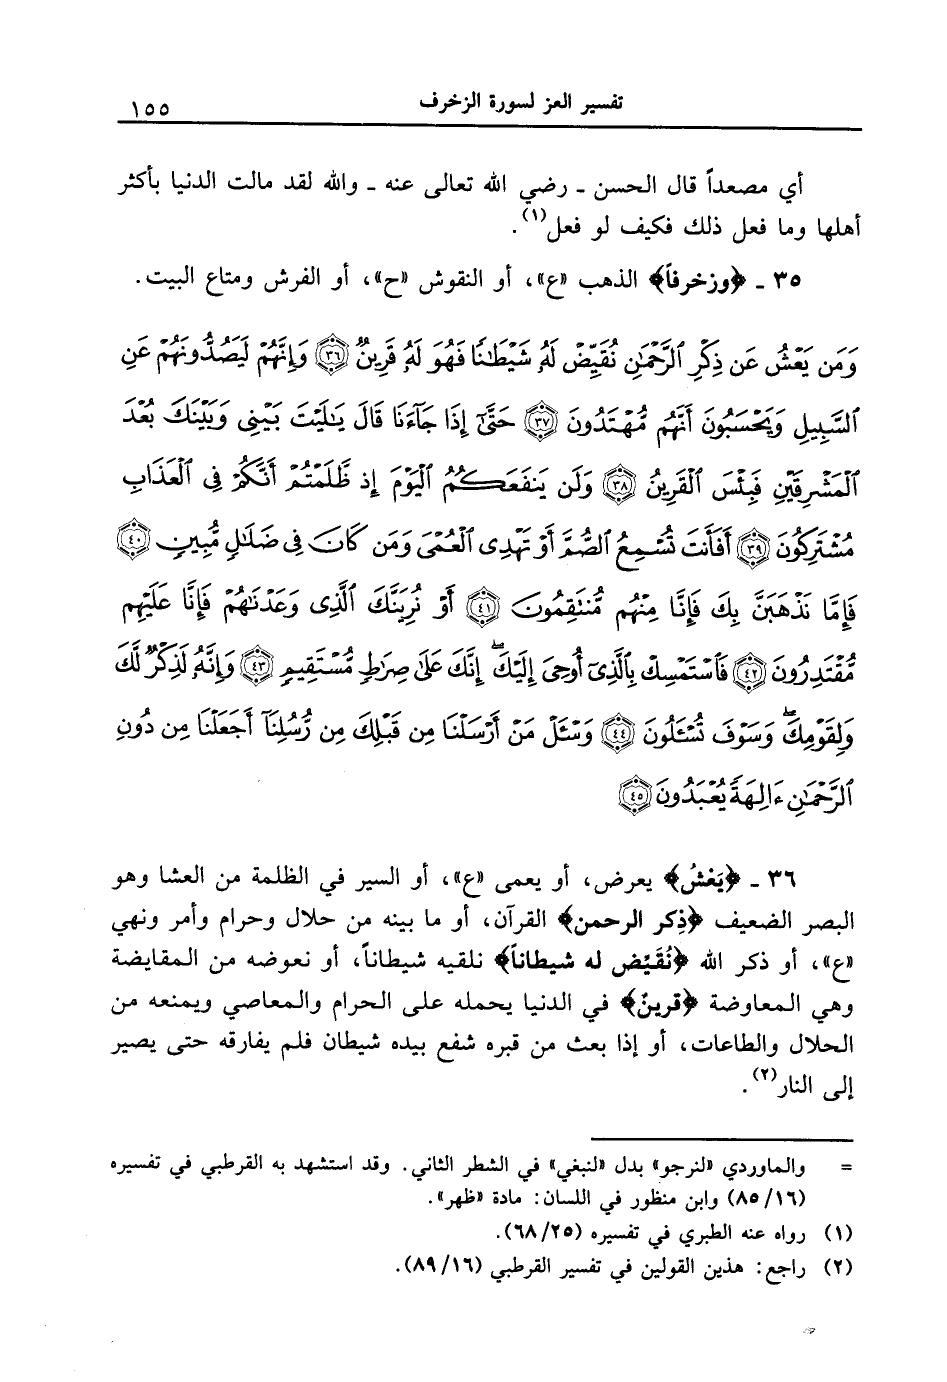 تفسير العز لسورة الزخرف ١٥٥
أي مصعداً قال الحسن ـ رضي الله تعالى عنه ـ والله لقد مالت الدنيا بأكثر
أهلها وما فعل ذلك فكيف لو فعل(١).
٣٥ ـ ﴿وزخرفاً﴾ الذهب «ع»، أو النقوش «ح»، أو الفرش ومتاع البيت.
وَمَن يَعْشُ عَن ذِكْرِ ٱلرَّحْمَٰنِ نُقَيِّضْ لَهُۥ شَيْطَٰنًا فَهُوَ لَهُۥ قَرِينٌ ﴿٣٦﴾ وَإِنَّهُمْ لَيَصُدُّونَهُمْ عَنِ
ٱلسَّبِيلِ وَيَحْسَبُونَ أَنَّهُم مُّهْتَدُونَ ﴿٣٧﴾ حَتَّىٰٓ إِذَا جَآءَنَا قَالَ يَٰلَيْتَ بَيْنِى وَبَيْنَكَ بُعْدَ
ٱلْمَشْرِقَيْنِ فَبِئْسَ ٱلْقَرِينُ ﴿٣٨﴾ وَلَن يَنفَعَكُمُ ٱلْيَوْمَ إِذ ظَّلَمْتُمْ أَنَّكُمْ فِى ٱلْعَذَابِ
مُشْتَرِكُونَ ﴿٣٩﴾ أَفَأَنتَ تُسْمِعُ ٱلصُّمَّ أَوْ تَهْدِى ٱلْعُمْىَ وَمَن كَانَ فِى ضَلَٰلٍ مُّبِينٍ ﴿٤٠﴾
فَإِمَّا نَذْهَبَنَّ بِكَ فَإِنَّا مِنْهُم مُّنتَقِمُونَ ﴿٤١﴾ أَوْ نُرِيَنَّكَ ٱلَّذِى وَعَدْنَٰهُمْ فَإِنَّا عَلَيْهِم
مُّقْتَدِرُونَ ﴿٤٢﴾ فَٱسْتَمْسِكْ بِٱلَّذِىٓ أُوحِىَ إِلَيْكَ ۖ إِنَّكَ عَلَىٰ صِرَٰطٍ مُّسْتَقِيمٍ ﴿٤٣﴾ وَإِنَّهُۥ لَذِكْرٌ لَّكَ
وَلِقَوْمِكَ ۖ وَسَوْفَ تُسْـَٔلُونَ ﴿٤٤﴾ وَسْـَٔلْ مَنْ أَرْسَلْنَا مِن قَبْلِكَ مِن رُّسُلِنَآ أَجَعَلْنَا مِن دُونِ
ٱلرَّحْمَٰنِ ءَالِهَةً يُعْبَدُونَ ﴿٤٥﴾
٣٦ ـ ﴿يَعْشُ﴾ يعرض، أو يعمى «ع»، أو السير في الظلمة من العشا وهو
البصر الضعيف ﴿ذِكر الرحمن﴾ القرآن، أو ما بينه من حلال وحرام وأمر ونهي
«ع»، أو ذكر الله ﴿نُقَيِّض له شيطاناً﴾ نلقيه شيطاناً، أو نعوضه من المقايضة
وهي المعاوضة ﴿قرينٌ﴾ في الدنيا يحمله على الحرام والمعاصي ويمنعه من
الحلال والطاعات، أو إذا بعث من قبره شفع بيده شيطان فلم يفارقه حتى يصير
إلى النار(٢).
= والماوردي «لنرجو» بدل «لنبغي» في الشطر الثاني. وقد استشهد به القرطبي في تفسيره
(٨٥/١٦) وابن منظور في اللسان: مادة «ظهر».
(١) رواه عنه الطبري في تفسيره (٦٨/٢٥).
(٢) راجع: هذين القولين في تفسير القرطبي (٨٩/١٦).